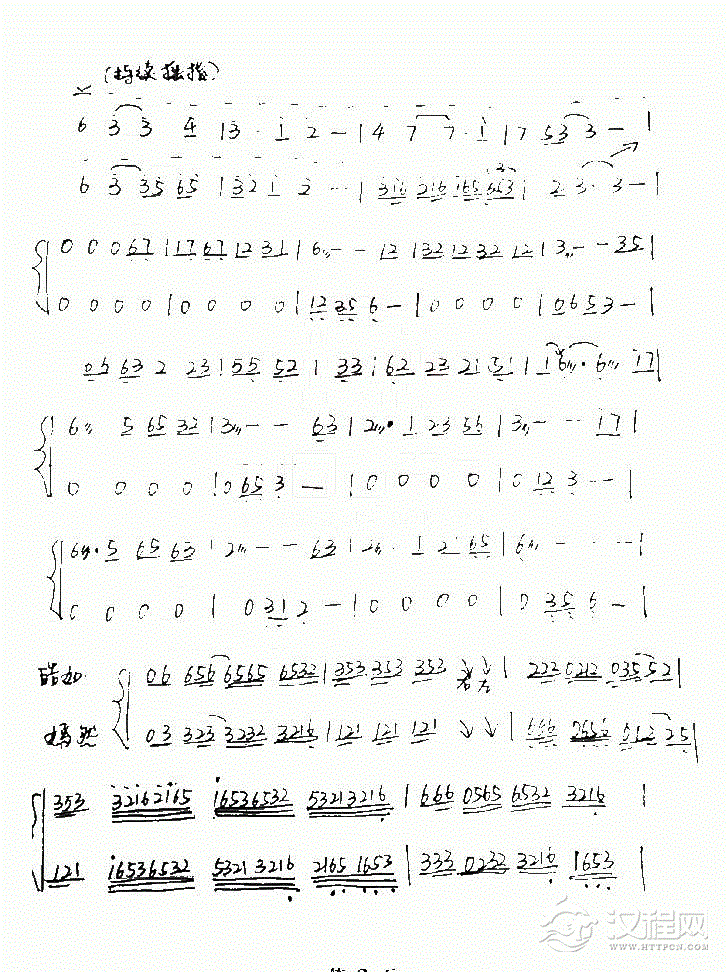 (持续摇指)
6 3 3 4 | 3 · 1 2 — | 4 7 7 · 1 | 7 53 3 — |
6 3 35 65 | 32 1 2 ·· | 316 216 165 653 | 2 3 · 3 — |
0 0 0 67 | 17 67 12 31 | 6 — — 12 | 32 12 32 12 | 3 — — 35 |
0 0 0 0 | 0 0 0 0 | 12 35 6 — | 0 0 0 0 | 0653 — |
05 63 2 23 | 55 52 1 33 | 62 23 21 51 | 1 6 · 6 17 |
6 5 65 32 | 3 — — 63 | 2 · 1 23 56 | 3 — — 17 |
0 0 0 0 | 0 65 3 — | 0 0 0 0 | 0 12 3 — |
6 · 5 65 63 | 2 — — 63 | 2 · 1 2 65 | 6 — — — |
0 0 0 0 | 0 31 2 — | 0 0 0 0 | 0 35 6 — |
06 656 6565 6532 | 353 353 353 | 222 0212 035 52 |
03 323 3232 3216 | 121 121 121 | 666 012 25 |
353 32162165 16536532 53213216 | 666 0565 6532 3216 |
121 16536532 53213216 21651653 | 333 0232 3216 1653 |
汉程网
WWW.HTTPCN.COM